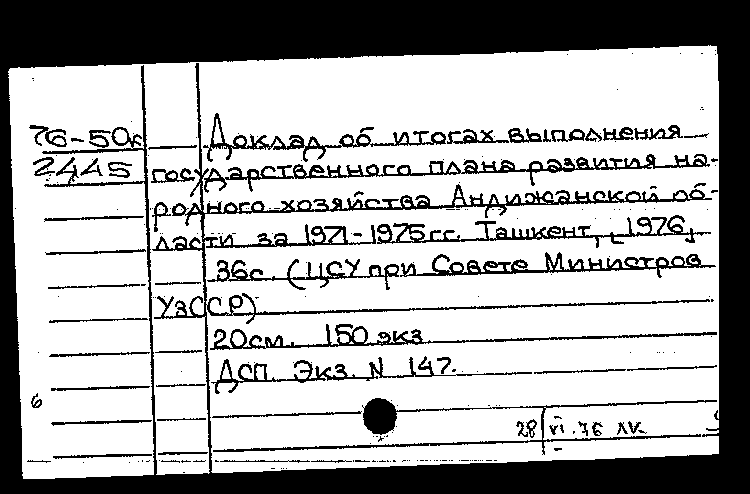 76-50к
2445
Доклад об итогах выполнения
государственного плана развития на-
родного хозяйства Андижанской об-
ласти за 1971-1975гг. Ташкент, [1976].
36с. (ЦСУ при Совете Министров
УзССР)
20см. 150 экз
ДСП. Экз. N 147.
6
28 VI.76 ЛК